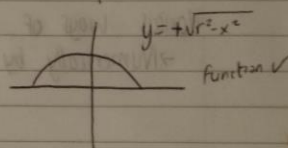 y = +√r²-x²
function ✓